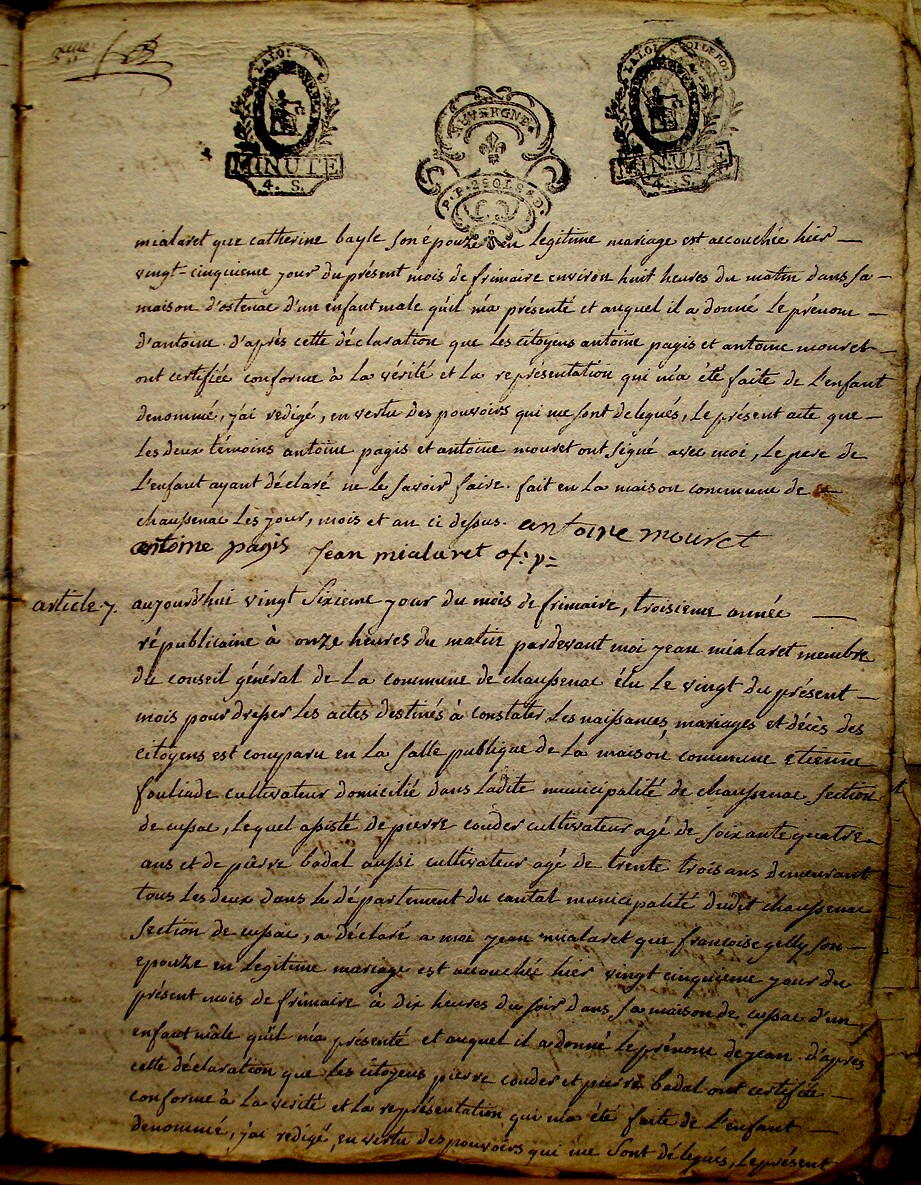 5eme
LA LOI
MINUTE
4. S.
AUVERGNE
LA LOI LE ROI
MINUTE
4. S.
mialaret que catherine bayle son épouze en legitime mariage est accouchée hier —
vingt-cinquieme jour du présent mois de frimaire environ huit heures du matin dans sa —
maison d'ostenac d'un enfant male qu'il m'a présenté et auquel il a donné le prénom —
d'antoine. d'après cette déclaration que les citoyens antoine pagis et antoine mouret —
ont certifiée conforme à la vérité et la représentation qui m'a été faite de l'enfant
denommé, j'ai redigé, en vertu des pouvoirs qui me sont delegués, le présent acte que —
les deux témoins antoine pagis et antoine mouret ont signé avec moi, le pere de
l'enfant ayant déclaré ne le savoir faire. fait en la maison commune de —
chaussenac les jour, mois et an ci dessus. antoine mouret
antoine pagis jean mialaret of: p=
article 7. aujourd'hui vingt sixieme jour du mois de frimaire, troisieme année —
républicaine à onze heures du matin pardevant moi jean mialaret membre
du conseil général de la commune de chaussenac élu le vingt du présent —
mois pour dresser les actes destinés à constater les naissances, mariages et décès des
citoyens est comparu en la salle publique de la maison commune etienne
fouliade cultivateur domicilié dans ladite municipalité de chaussenac section
de cussac, lequel assisté de pierre couder cultivateur agé de soixante quatre
ans et de pierre badal aussi cultivateur agé de trente trois ans demeurant
tous les deux dans le département du cantal municipalité dudit chaussenac
section de cussac, a déclaré a moi jean mialaret que françoise gelly son —
epouze en legitime mariage est accouchée hier vingt cinquieme jour du
présent mois de frimaire à dix heures du soir dans sa maison de cussac d'un
enfant mâle qu'il m'a présenté et auquel il a donné le prénom de jean. d'apres
cette déclaration que les citoyens pierre couder et pierre badal ont certifiée —
conforme à la verité et la représentation qui m'a été faite de l'enfant —
denommé, j'ai redigé, en vertu des pouvoirs qui me sont délegués, le présent